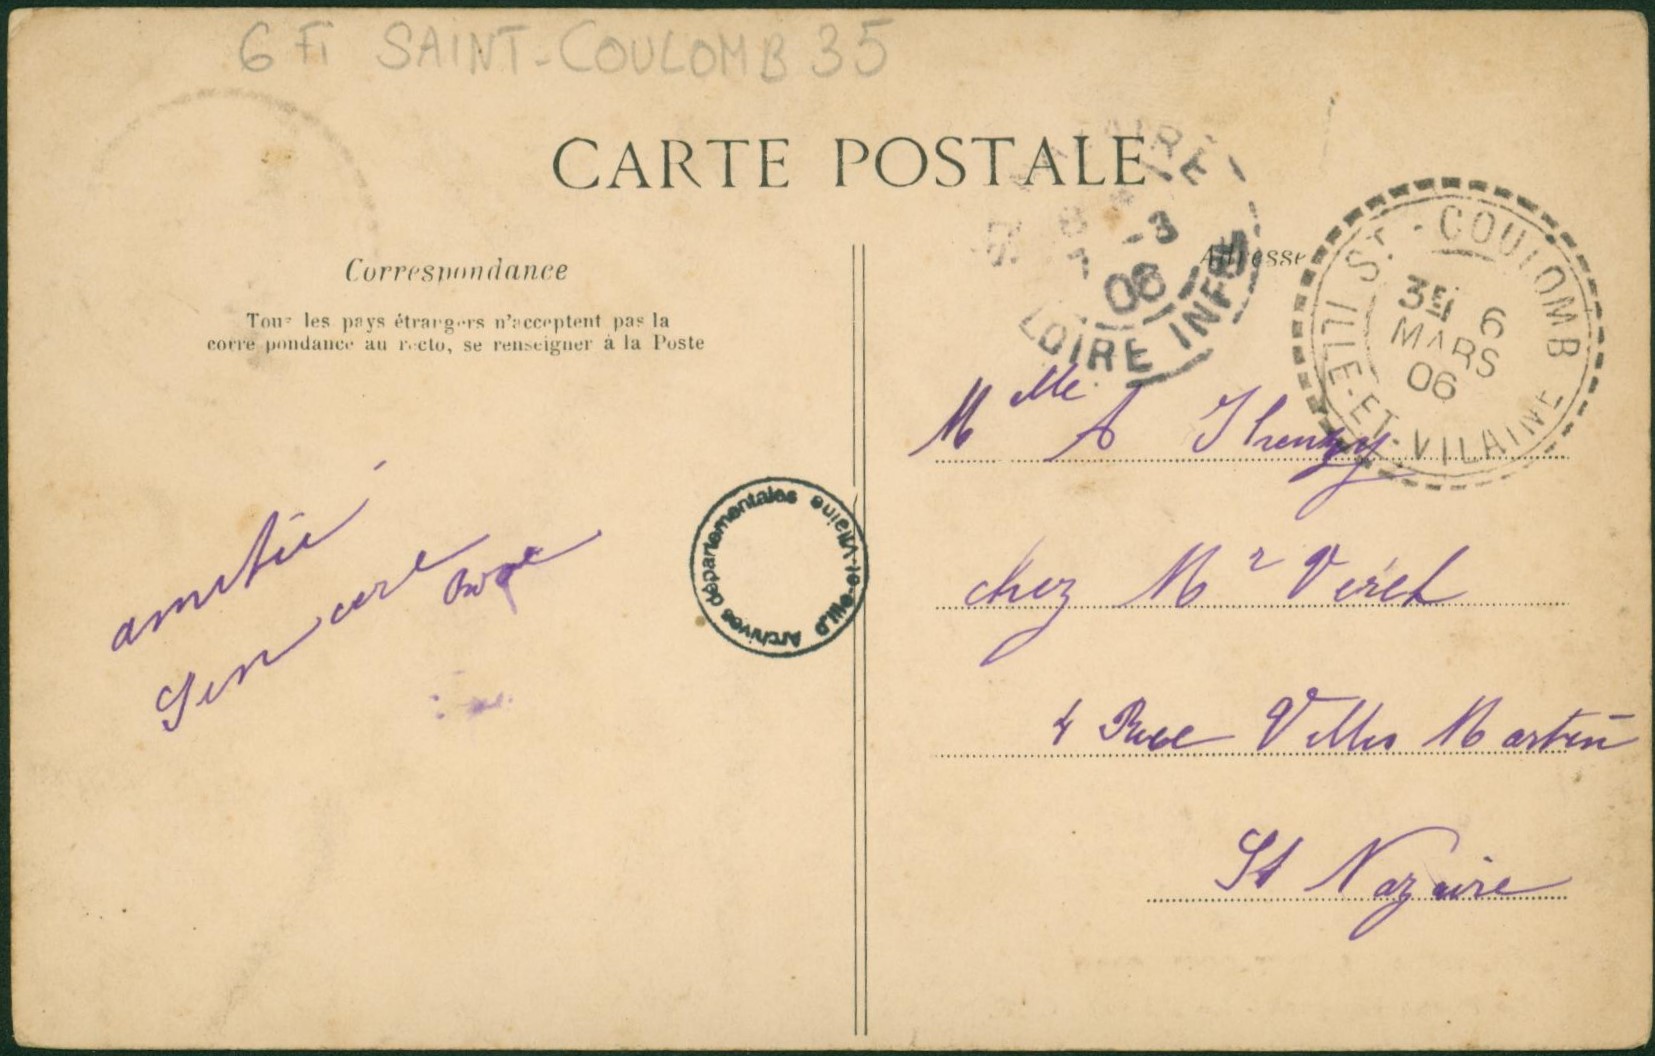 6 Fi SAINT-COULOMB 35
CARTE POSTALE
Correspondance
Tous les pays étrangers n'acceptent pas la
correspondance au recto, se renseigner à la Poste
Adresse
-3
06
LOIRE INFRE
ST-COULOMB
3E 6
MARS
06
ILLE-ET-VILAINE
Mlle A
chez Mr
4 Rue Villes Martin
St Nazaire
amitié
Archives départementales
d'Ille-et-Vilaine